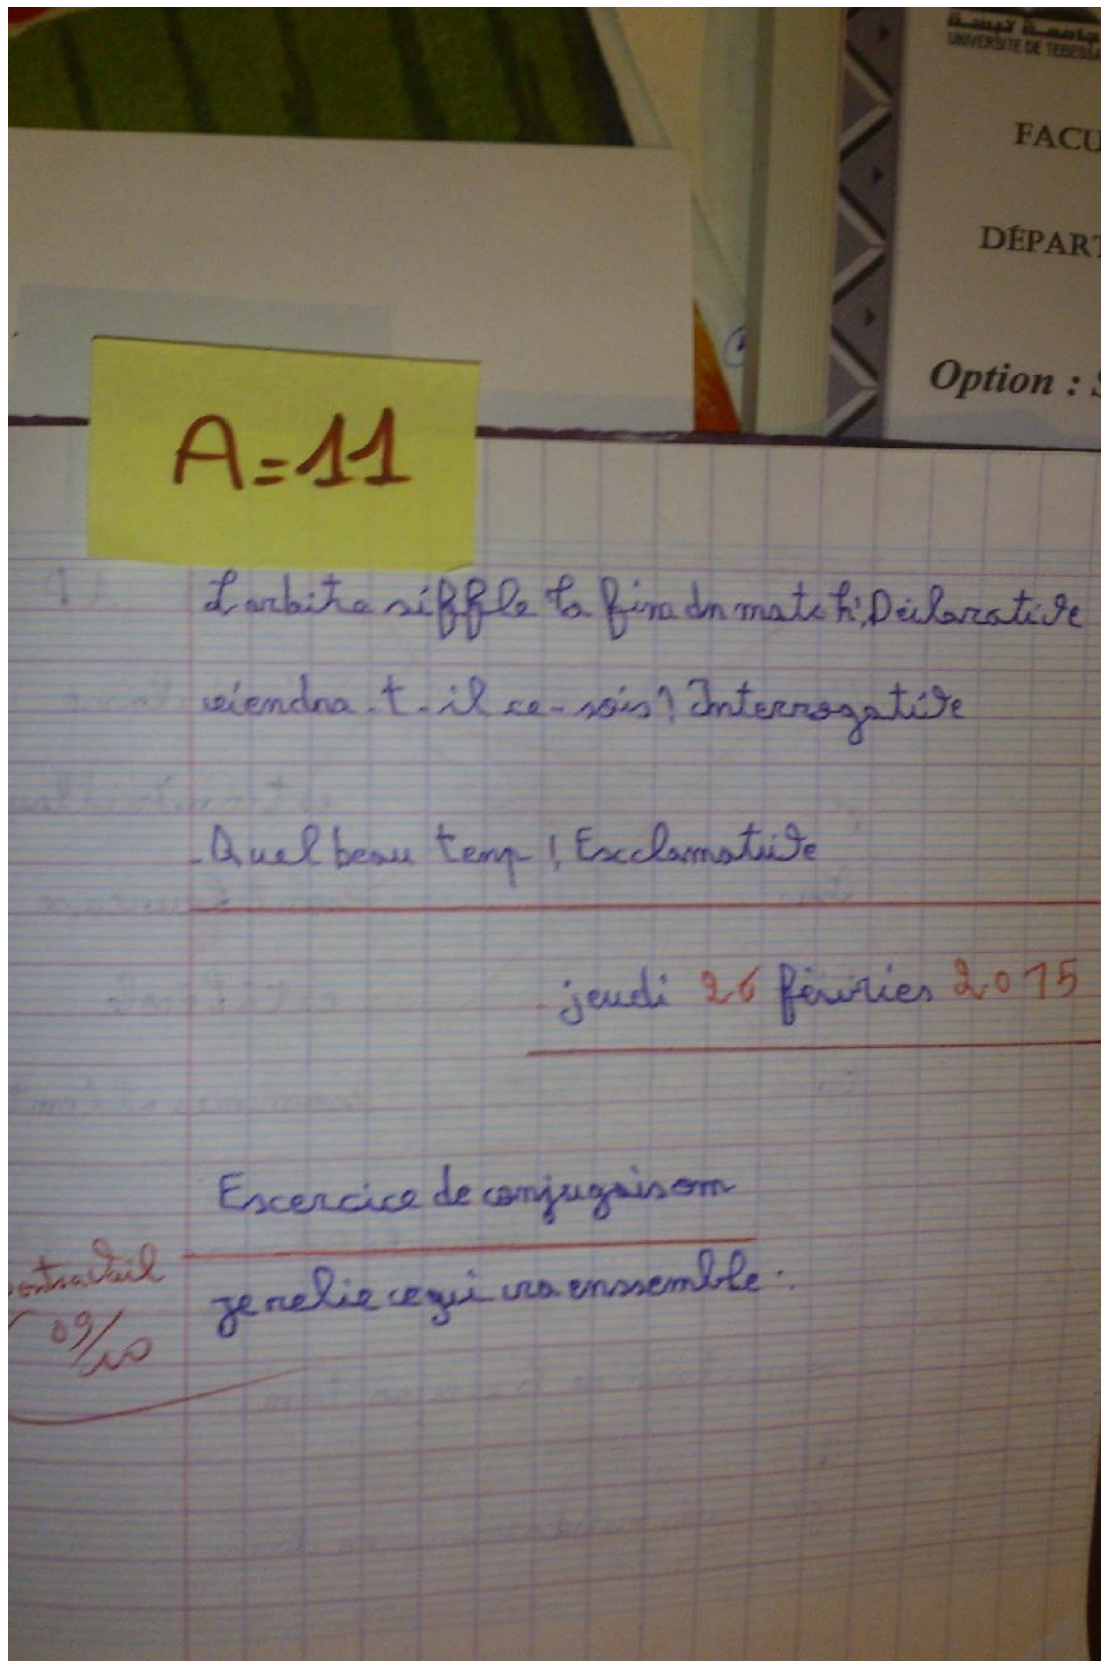 جامعة تبسة
UNIVERSITE DE TEBESSA
FACU
DÉPART
Option : S
A=11
L'arbitre siffle la fin du match; Déclarative
viendra-t-il ce-sois? Interrogative
-Quel beau temp! Esxclamative
jeudi 26 févriries 2015
Escercice de conjugaisom
je relie ce qui vra enssemble :
09/10